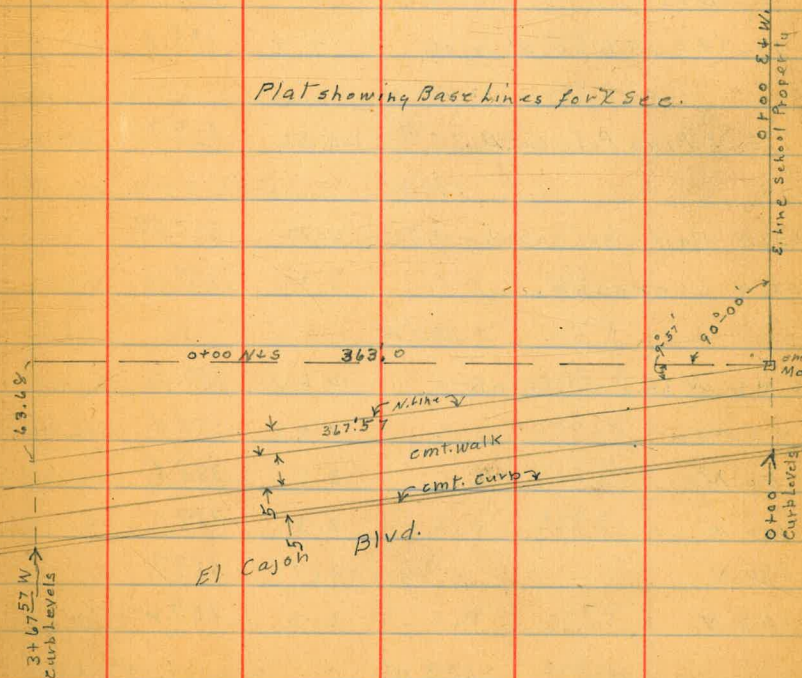 Plat showing Base Lines for X Sec.
0+00 E & W.
E. Line School Property
90°-00'
9°-57'
0+00 N & S 363.0
63.68
N. Line
367.57
cmt. walk
cmt. curb
5
5
El Cajon Blvd.
0+00
Curb Levels
3+67 57 W
Curb Levels